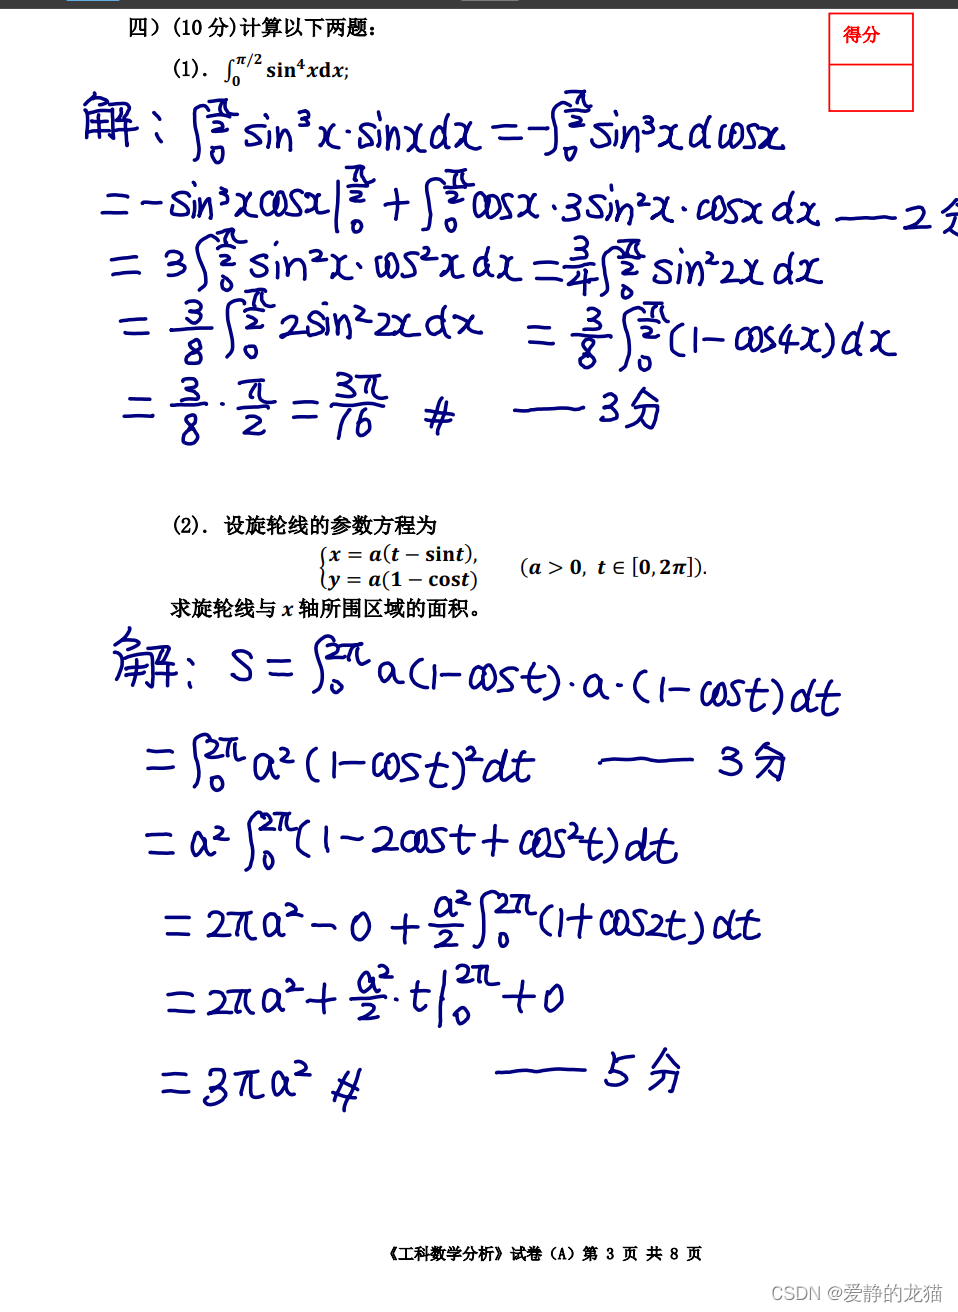 四）(10 分)计算以下两题：
得分
(1)． ∫₀^{π/2} sin⁴xdx;
解：∫₀^{π/2} sin³x·sinxdx = -∫₀^{π/2} sin³x dcosx
= -sin³xcosx|₀^{π/2} + ∫₀^{π/2} cosx·3sin²x·cosxdx —— 2分
= 3∫₀^{π/2} sin²x·cos²xdx = 3/4 ∫₀^{π/2} sin²2xdx
= 3/8 ∫₀^{π/2} 2sin²2xdx = 3/8 ∫₀^{π/2} (1-cos4x)dx
= 3/8 · π/2 = 3π/16 # —— 3分
(2)． 设旋轮线的参数方程为
{x = a(t − sint),
y = a(1 − cost) (a > 0, t ∈ [0,2π]).
求旋轮线与 x 轴所围区域的面积。
解：S = ∫₀^{2π} a(1-cost)·a·(1-cost)dt
= ∫₀^{2π} a²(1-cost)²dt —— 3分
= a² ∫₀^{2π} (1-2cost+cos²t)dt
= 2πa² - 0 + a²/2 ∫₀^{2π} (1+cos2t)dt
= 2πa² + a²/2 · t|₀^{2π} + 0
= 3πa² # —— 5分
《工科数学分析》试卷（A）第 3 页 共 8 页
CSDN @爱静的龙猫